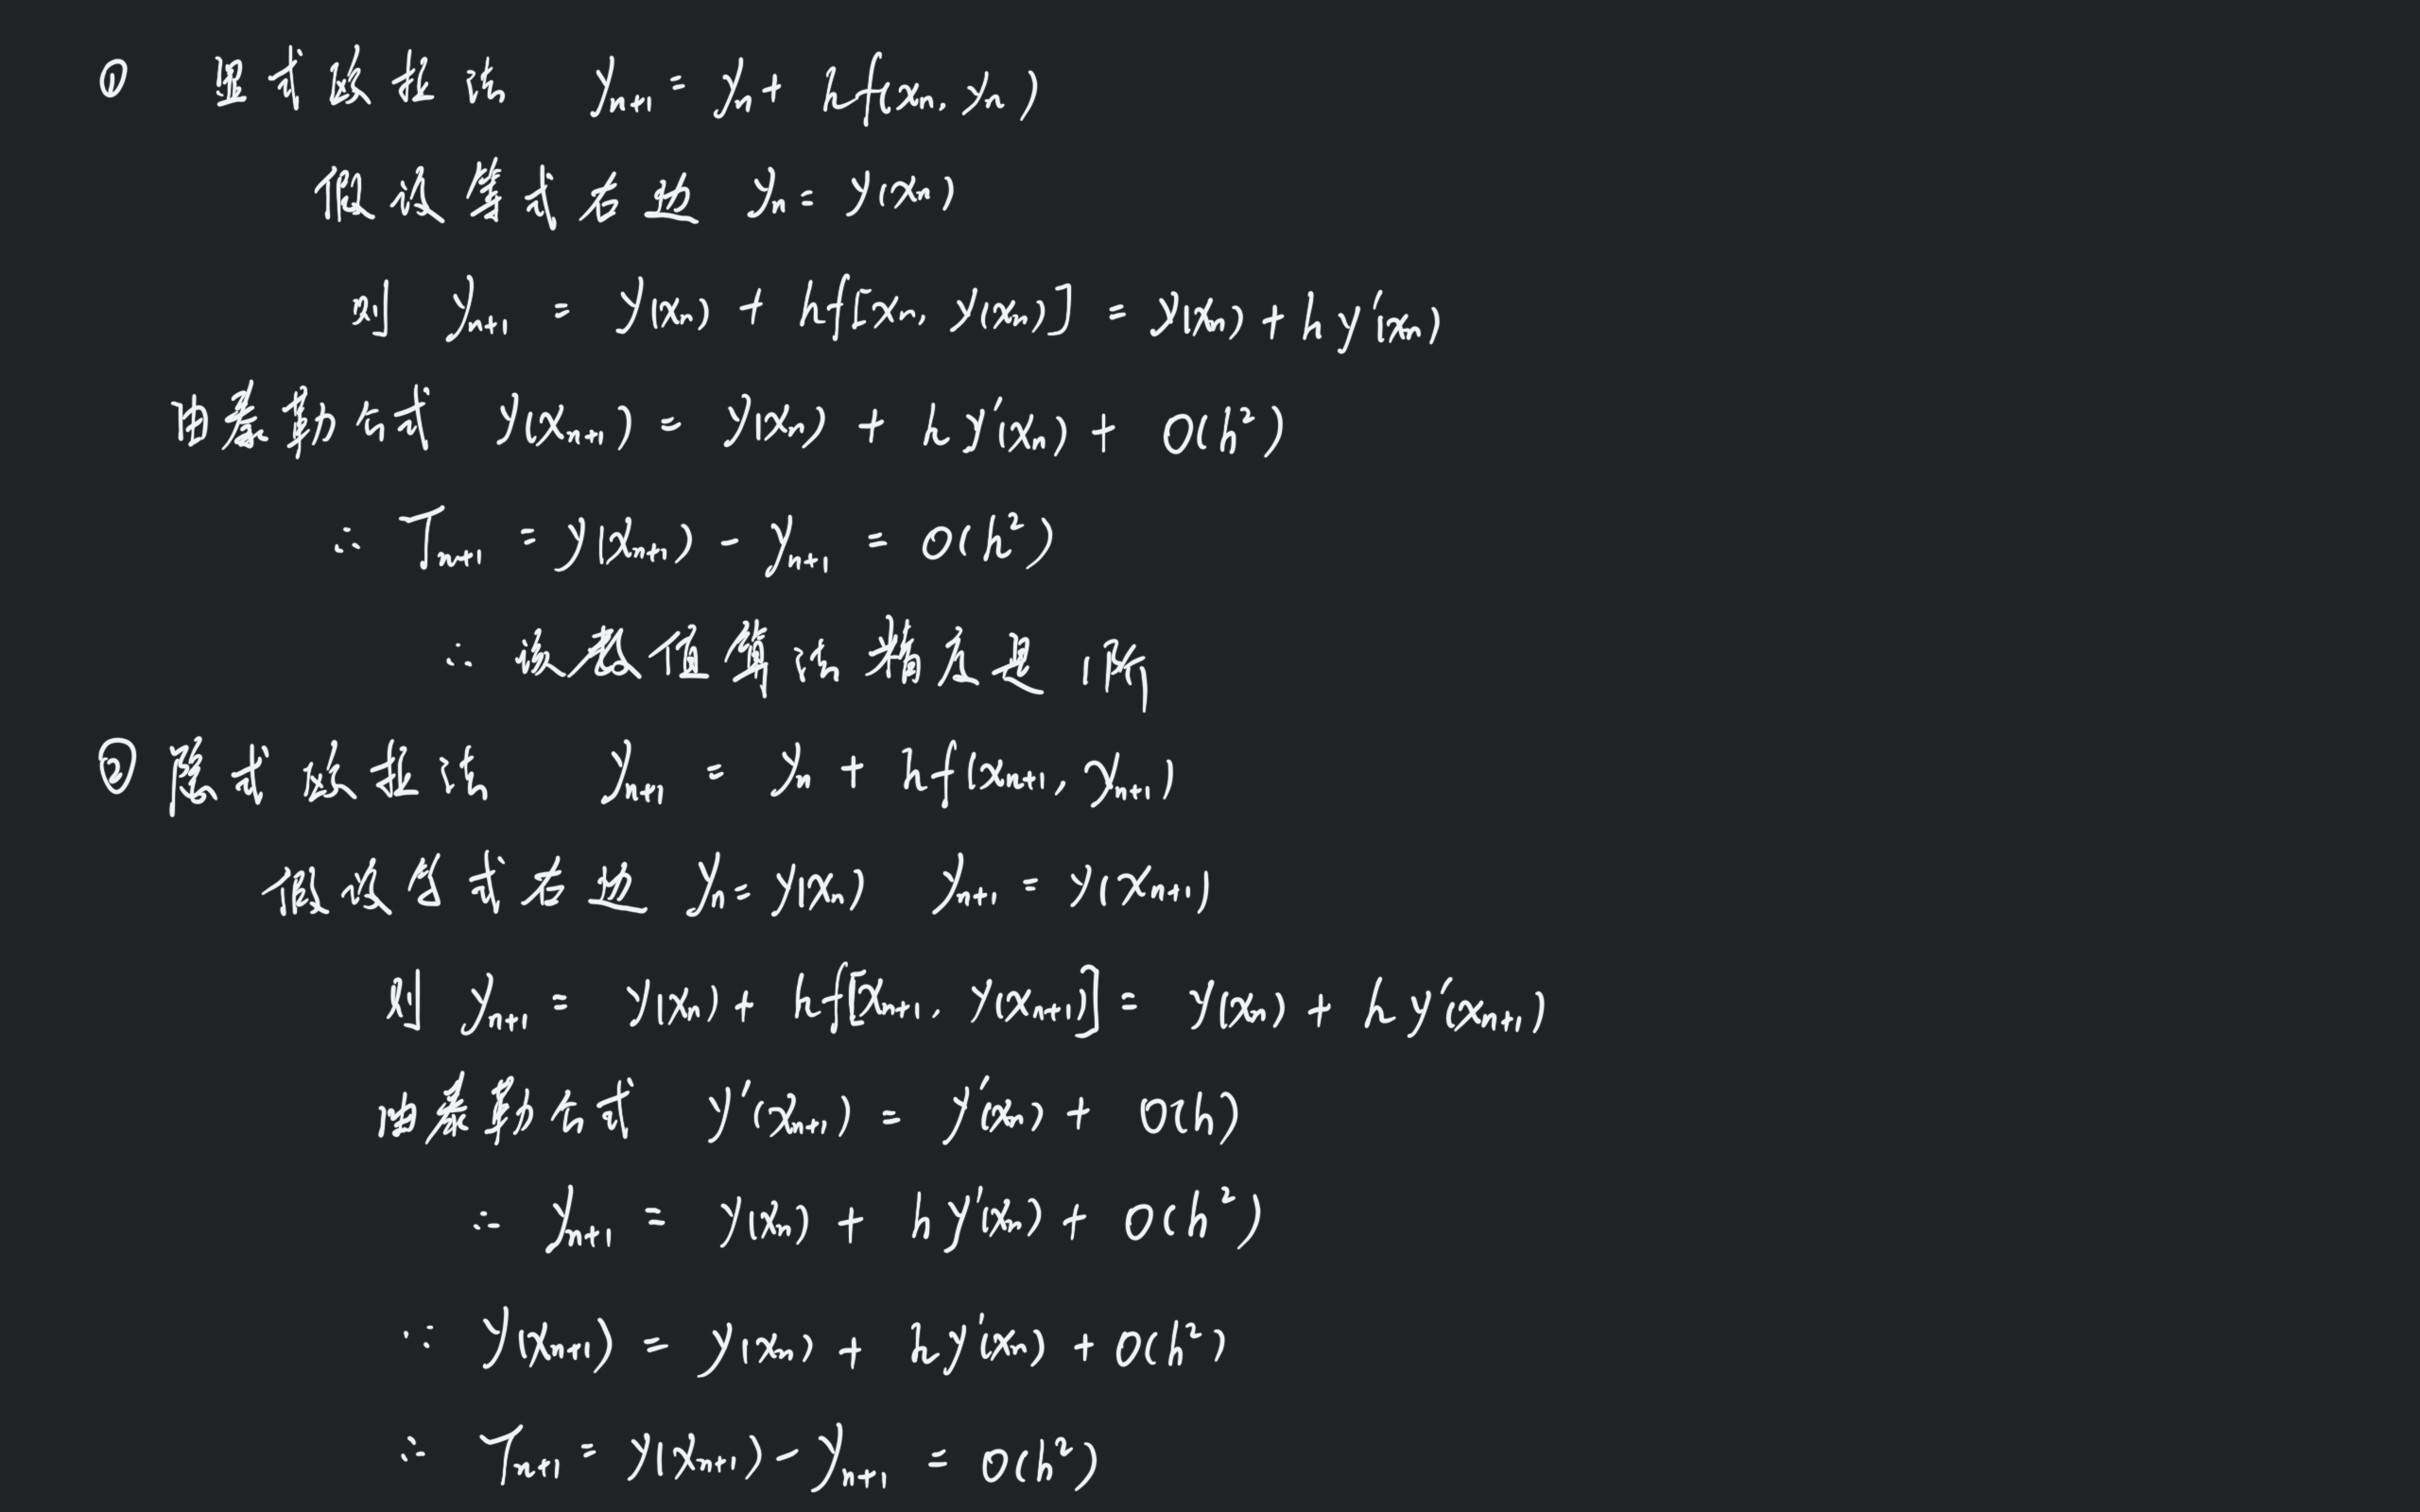 ① 显式欧拉法 yₙ₊₁ = yₙ + hf(xₙ, yₙ)
假设等式右边 yₙ = y(xₙ)
则 yₙ₊₁ = y(xₙ) + hf[xₙ, y(xₙ)] = y(xₙ) + hy′(xₙ)
由泰勒公式 y(xₙ₊₁) = y(xₙ) + hy′(xₙ) + O(h²)
∴ Tₙ₊₁ = y(xₙ₊₁) - yₙ₊₁ = O(h²)
∴ 该数值算法精度是1阶
② 隐式欧拉法 yₙ₊₁ = yₙ + hf(xₙ₊₁, yₙ₊₁)
假设等式右边 yₙ = y(xₙ) yₙ₊₁ = y(xₙ₊₁)
则 yₙ₊₁ = y(xₙ) + hf[xₙ₊₁, y(xₙ₊₁)] = y(xₙ) + hy′(xₙ₊₁)
由泰勒公式 y′(xₙ₊₁) = y′(xₙ) + O(h)
∴ yₙ₊₁ = y(xₙ) + hy′(xₙ) + O(h²)
∵ y(xₙ₊₁) = y(xₙ) + hy′(xₙ) + O(h²)
∴ Tₙ₊₁ = y(xₙ₊₁) - yₙ₊₁ = O(h²)